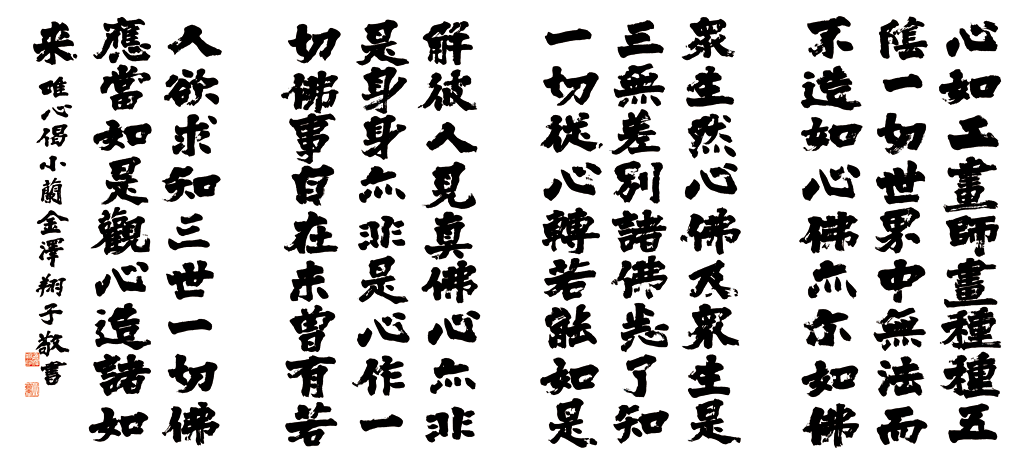 心如工畫師畫種種五
陰一切世界中無法而
不造如心佛亦尒如佛
衆生然心佛及衆生是
三無差別諸佛悉了知
一切從心轉若能如是
解彼人見真佛心亦非
是身身亦非是心作一
切佛事自在未曾有若
人欲求知三世一切佛
應當如是觀心造諸如
来 唯心偈小蘭金澤翔子敬書